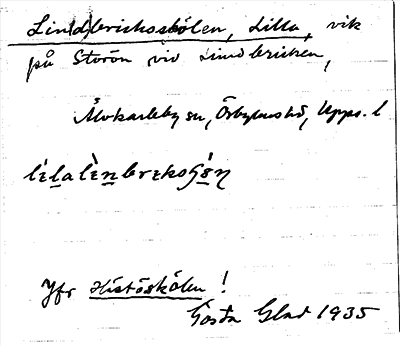 Lin(d)bricksskölen, Lilla, vik
på Storön vid Lindbricken,
Älvkarleby sn, Örbyhus hd, Upps. l
Jfr Histöskölen!
Gösta Glad 1935